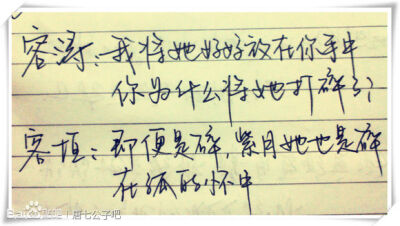 容浔：我将她好好放在你手中
你为什么将她打碎了？
容垣：即便是碎，紫月她也是碎
在孤的怀中
Baidu贴吧 | 唐七公子吧